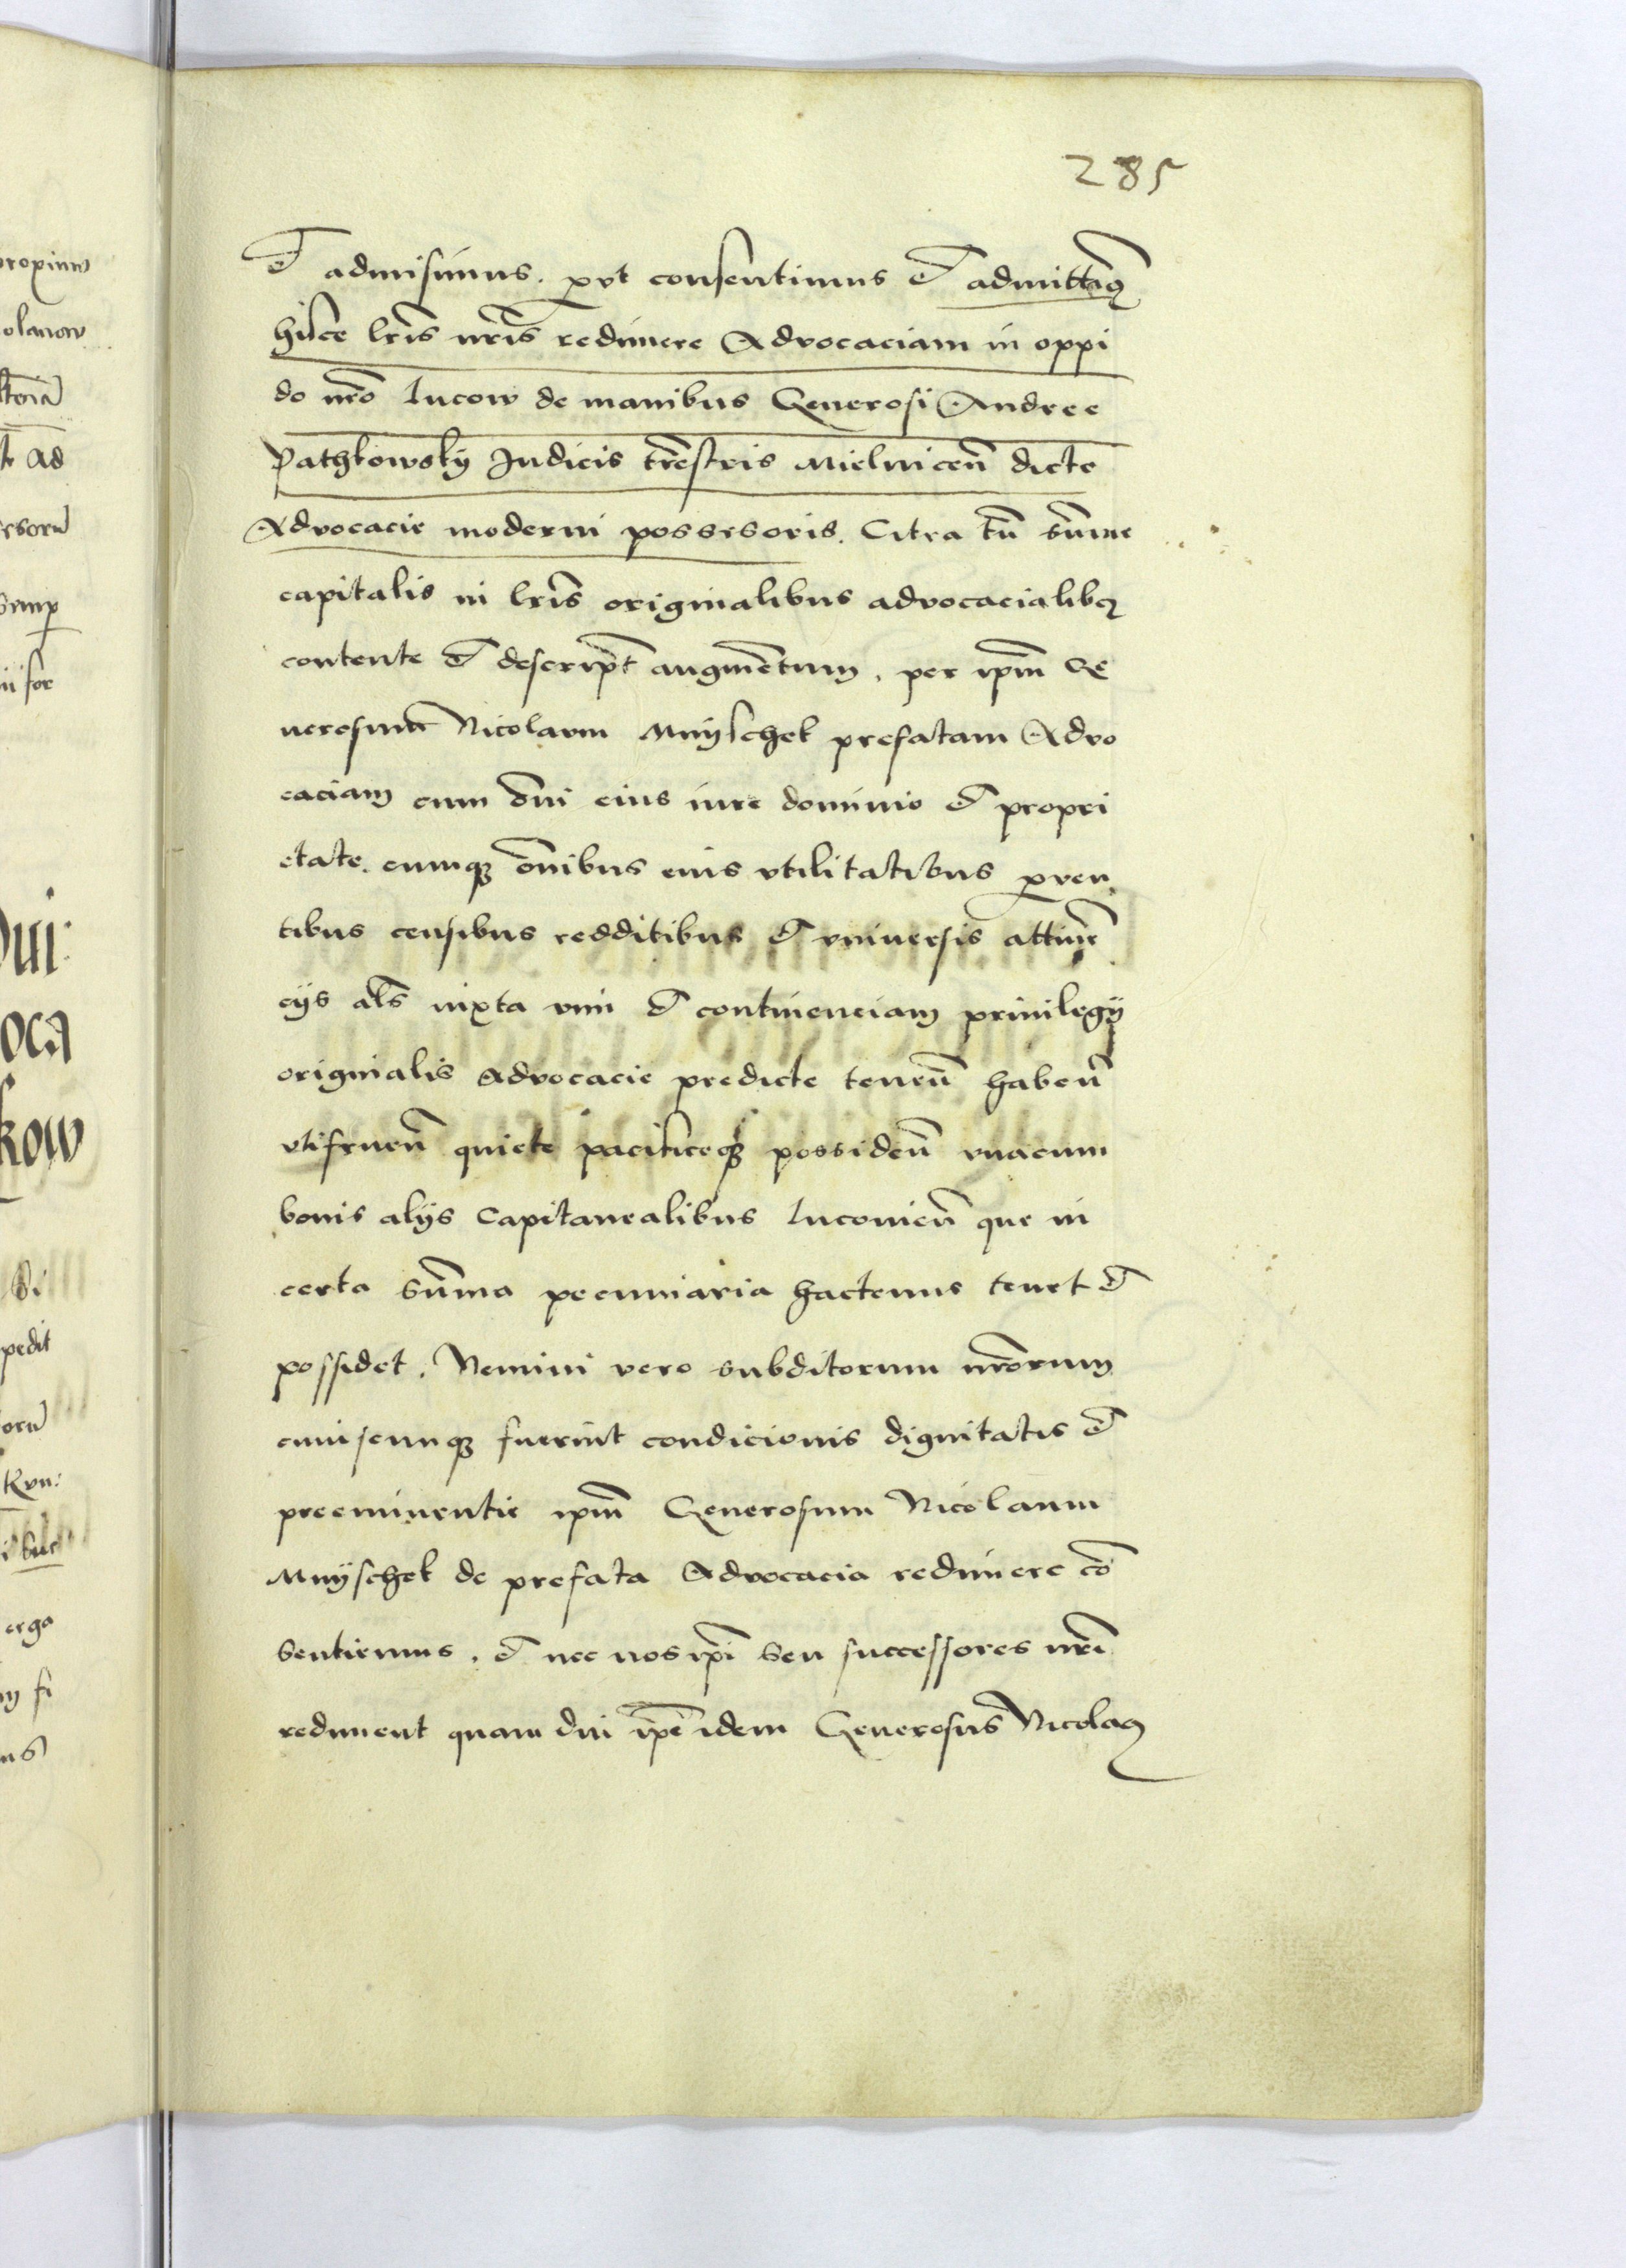 285
et admisimus. prvt consentimus et admittimꝯ
hisce lris nris redimere Advocaciam in oppi
do nro Lucow de manibus Generosi Andree
Pathkowsky Judicis trestris Mielnicen̄ dicte
Advocacie moderni possesoris. Citra tn̄ sum̄e
capitalis in lris originalibus advocacialibꝯ
contente et descript̄ augmentum, per ipm̄ Ge
nerosum Nicolaum Myschek prefatam Advo
caciam cum om̄i eius iure dominio et propri
etate. cumqꝫ om̄ibus eius vtilitatibus prven
tibus censibus redditibus et vniversis attinen̄
cijs als̄ iuxta vim et continenciam privilegij
originalis Advocacie predicte tenen̄ haben̄
vtifruen̄ quiete pacificeqꝫ possiden̄ vnacum
bonis alijs Capitanealibus Lucovien̄ que in
certa sum̄a pecuniaria hactenus tenet et
possidet. Nemini vero subditorum nrorum
cuiuscunqꝫ fuerint condicionis dignitatis et
preeminentie ipm̄ Generosum Nicolaum
Myschek de prefata Advocacia redimere cō
sentiemus. et nec nos ipi seu successores nri
rediment quam diu ipe idem Generosus Nicolaꝯ